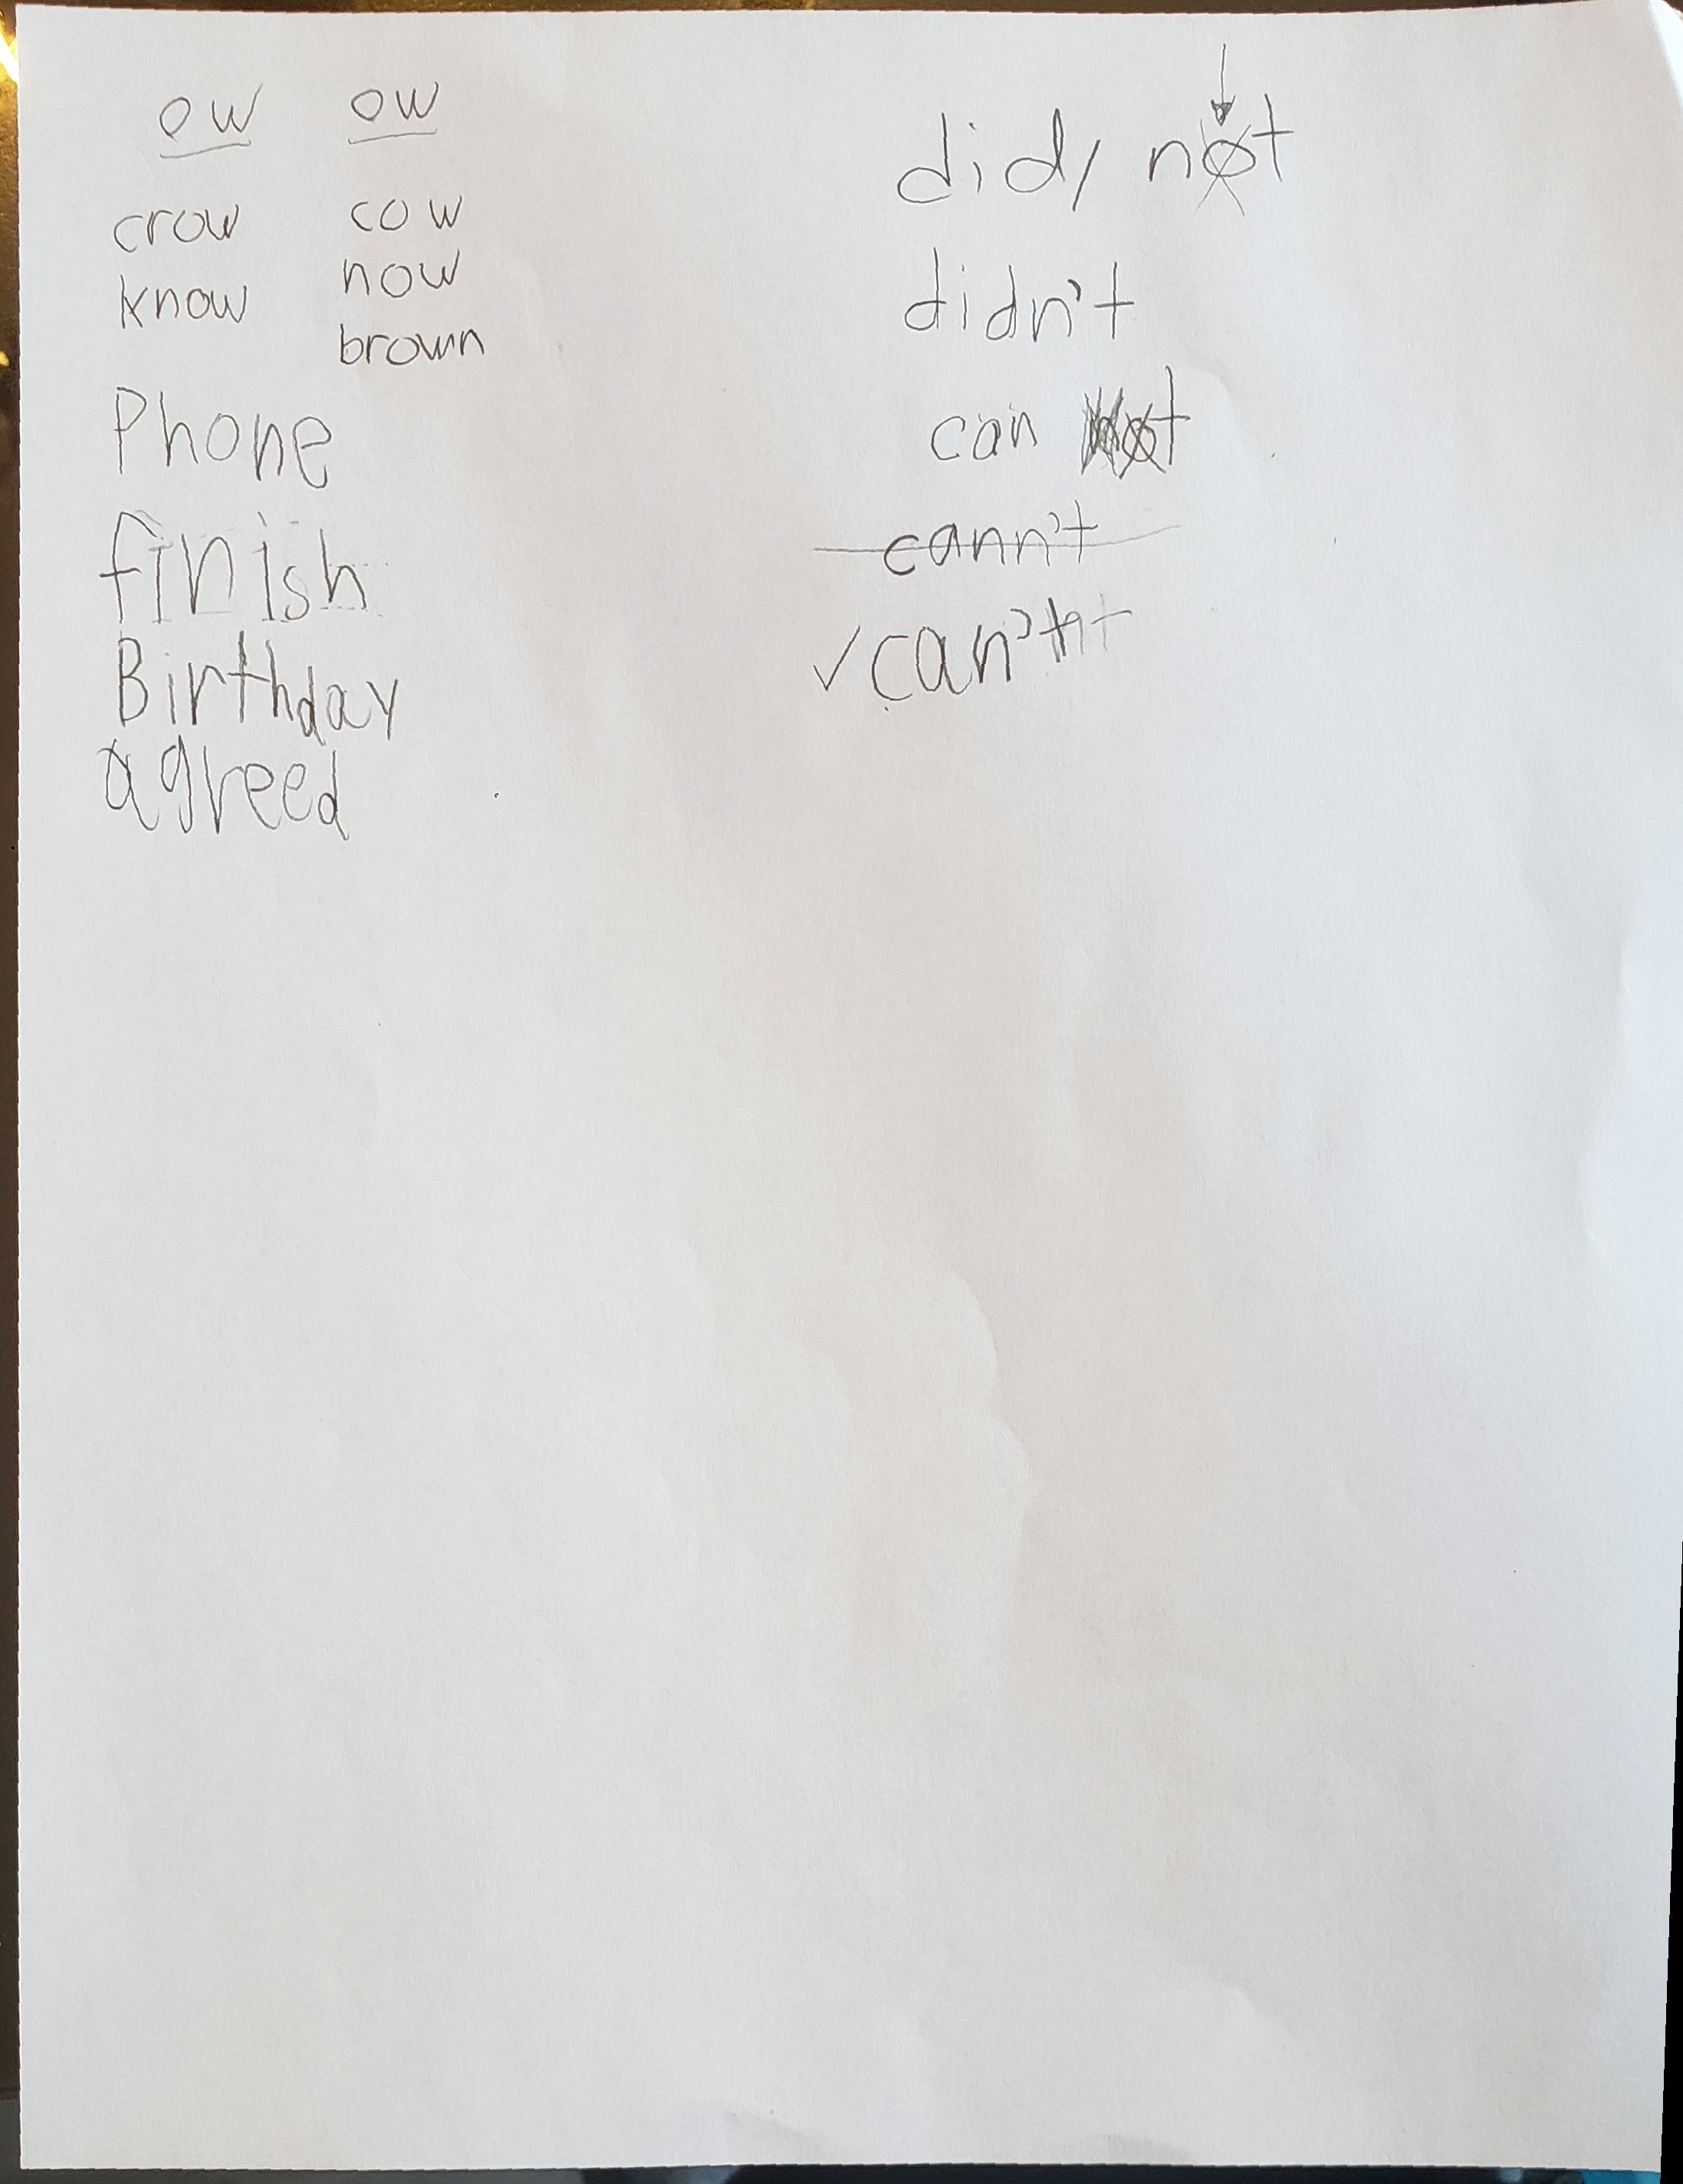 ow ow
crow cow
know now
brown
Phone
finish
Birthday
agreed
did, not
didn't
can not
cann't
✓can't